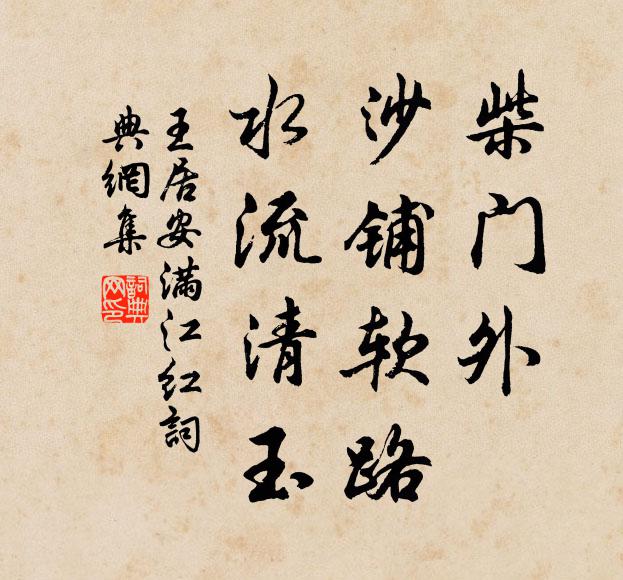 柴门外
沙铺软路
水流清玉
王居安满江红词
典網集
詞典网印